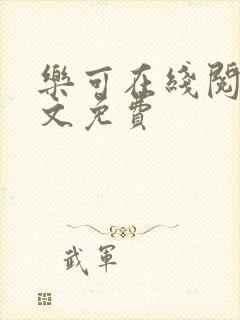 樂可在綫閱
文免費
武軍